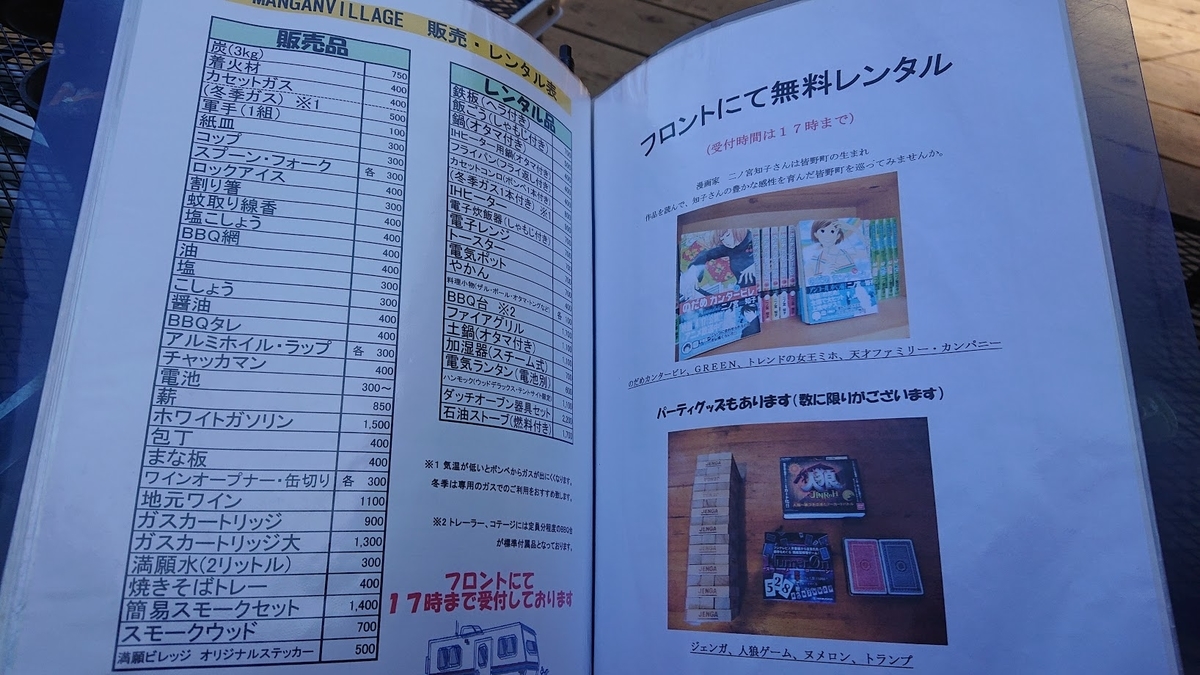 MANGANVILLAGE 販売・レンタル表
販売品
炭(3kg) 750
着火材 400
カセットガス 400
(冬季ガス) ※1 500
軍手(1組) 100
紙皿 300
コップ 300
スプーン・フォーク 各 300
ロックアイス 400
割り箸 300
蚊取り線香 400
塩こしょう 400
BBQ網 400
油 400
塩 300
こしょう 300
醤油 400
BBQタレ 400
アルミホイル・ラップ 各 300
チャッカマン 400
電池 300～
薪 850
ホワイトガソリン 1,500
包丁 400
まな板 400
ワインオープナー・缶切り 各 300
地元ワイン 1100
ガスカートリッジ 900
ガスカートリッジ大 1,300
満願水(2リットル) 300
焼きそばトレー 400
簡易スモークセット 1,400
スモークウッド 700
満願ビレッジ オリジナルステッカー 500
レンタル品
鉄板(ヘラ付き)
飯ごう(しゃもじ付き)
鍋(オタマ付き)
IHヒーター用鍋(オタマ付き)
フライパン(フライ返し付き)
カセットコンロ(ボンベ1本付き)
(冬季ガス1本付き) ※1
IHヒーター
電子炊飯器(しゃもじ付き)
電子レンジ
トースター
電気ポット
やかん
料理小物(ザル・ボール・オタマ・トングなど) 各 100
BBQ台 ※2
ファイアグリル
土鍋(オタマ付き)
加湿器(スチーム式)
電気ランタン(電池別)
ハンモック(ウッドデラックス・テントサイト限定) 1,100
ダッチオーブン器具セット 2,200
石油ストーブ(燃料付き) 1,700
※1 気温が低いとボンベからガスが出にくくなります。
冬季は専用のガスでのご利用をおすすめ致します。
※2 トレーラー、コテージには定員分程度のBBQ台
が標準付属品となっております。
フロントにて
17時まで受付しております
フロントにて無料レンタル
(受付時間は17時まで)
漫画家 二ノ宮知子さんは皆野町の生まれ
作品を読んで、知子さんの豊かな感性を育んだ皆野町を巡ってみませんか。
のだめカンタービレ
二ノ宮 知子
のだめカンタービレ、GREEN、トレンドの女王ミホ、天才ファミリー・カンパニー
パーティグッズもあります(数に限りがございます)
JENGA
JENGA
JENGA
JENGA
人狼
JINROH
528
ジェンガ、人狼ゲーム、ヌメロン、トランプ